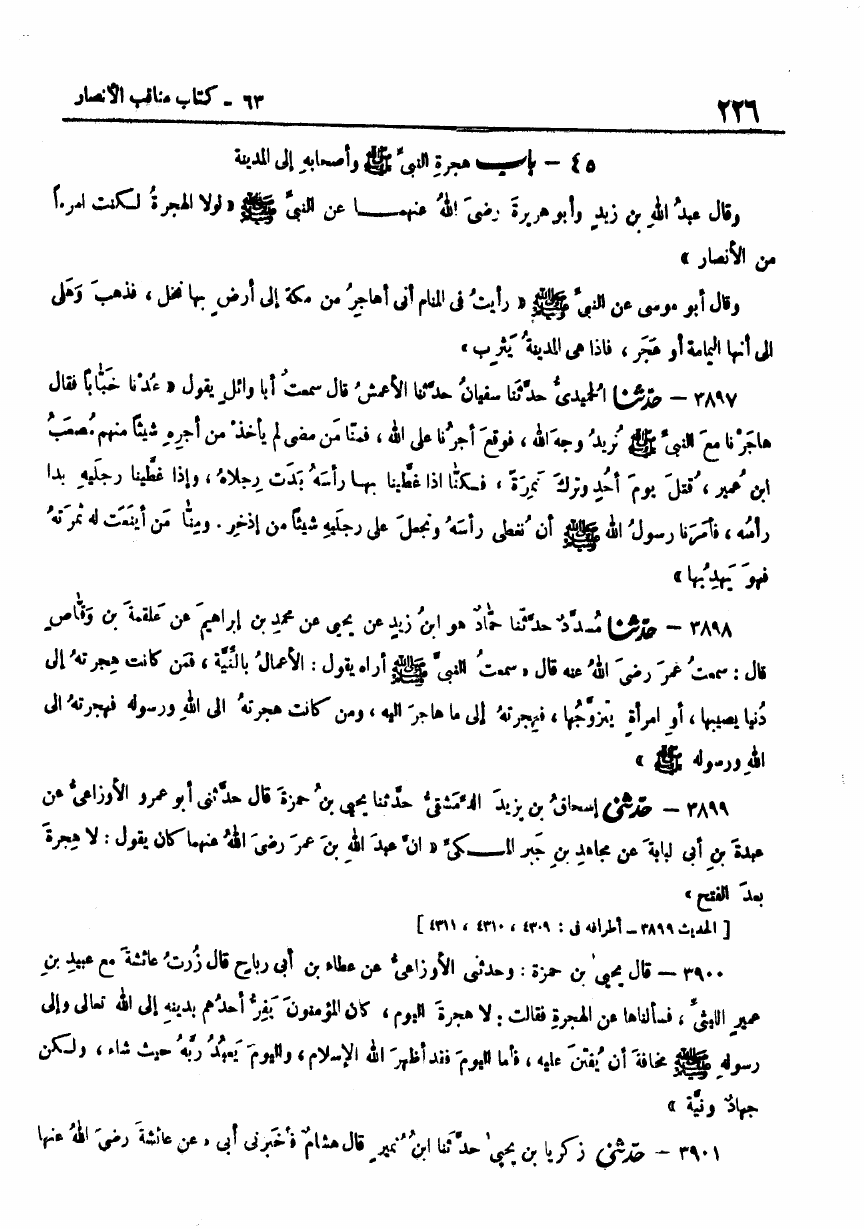 ٢٢٦ ٦٣ - كتاب مناقب الأنصار
٤٥ - باب هجرةِ النبيِّ ﷺ وأصحابهِ إلى المدينة
وقال عبدُ اللهِ بن زيدٍ وأبو هريرةَ رضيَ اللهُ عنهمـا عن النبيِّ ﷺ « لولا الهجرةُ لـكنت امرءاً
من الأنصار »
وقال أبو موسى عن النبيِّ ﷺ « رأيتُ فى المنام أنى أهاجِرُ من مكة إلى أرضٍ بها نخل ، فذهبَ وَهَلى
الى أنها اليمامة أو هَجَر ، فاذا هى المدينةُ يَثرِب »
٣٨٩٧ - حدّثنا الحميدىُّ حدَّثَنا سفيانُ حدَّثنا الأعمشُ قال سمعتُ أبا وائلٍ يقول « عُدْنا خَبَّاباً فقال
هاجَرْنا معَ النبيِّ ﷺ نُريدُ وجهَ الله ، فوقعَ أجرُنا على الله ، فمنّا مَن مضى لم يأخذْ من أجرِهِ شيئاً منهم مُصعَبُ
ابن عُمير ، قُتلَ يومَ أحُدٍ وتركَ نَمِرَةً ، فـكنّا اذا غطَّينا بهـا رأسَهُ بَدَت رِجلاهُ ، وإذا غطَّينا رجلَيهِ بدا
رأسُه ، فأمَرَنا رسولُ الله ﷺ أن نُغطى رأسَهُ ونجعلَ على رجلَيهِ شيئاً من إذخِر . ومِنّا مَن أينَعَت له ثمرَتهُ
فهوَ يَهدِبُها »
٣٨٩٨ - حدّثنا مُسدَّدٌ حدثَنا حمّادٌ هو ابنُ زيدٍ عن يحيى عن محمدِ بن إبراهيمَ عن عَلقمةَ بن وَقّاصٍ
قال : سمعتُ عمرَ رضىَ اللهُ عنه قال « سمعتُ النبىَّ ﷺ أراه يقول : الأعمالُ بالنِّيَّة ، فمَن كانت هِجرتهُ إلى
دُنيا يصيبها ، أوِ امرأةٍ يتزوَّجُها ، فهِجرتهُ إلى ما هاجرَ اليه ، ومن كانت هجرتهُ الى اللهِ ورسولهِ فهجرتهُ الى
اللهِ ورسوله ﷺ »
٣٨٩٩ - حدّثنى إسحاقُ بن يزيدَ الدِّمَشقىُّ حدَّثنا يحيى بنُ حمزةَ قال حدَّثنى أبو عمرو الأوزاعىُّ عن
عبدةَ بنِ أبى لبابةَ عن مجاهدِ بنِ جَبر المـكىِّ « انَّ عبدَ اللهِ بنَ عمرَ رضىَ اللهُ عنهما كان يقول : لا هِجرةَ
بعدَ الفتح »
[ الحديث ٣٨٩٩ - أطرافه فى : ٤٣٠٩ ، ٤٣١٠ ، ٤٣١١ ]
٣٩٠٠ - قال يحيى بن حمزة : وحدثنى الأوزاعىُّ عن عطاء بن أبى رباحٍ قال زُرتُ عائشةَ مع عبيدِ بنِ
عميرٍ الليثىِّ ، فسألناها عن الهجرةِ فقالت : لا هجرةَ اليوم ، كان المؤمنونَ يَفِرُّ أحدُهم بدينهِ إلى الله تعالى وإلى
رسولهِ ﷺ مخافةَ أن يُفتَنَ عليه ، فأما اليومَ فقد أظهرَ الله الإسلام ، واليومَ يَعبُدُ ربَّهُ حيث شاء ، ولـكن
جهادٌ ونيَّة »
٣٩٠١ - حدّثنى زكريا بن يحيى حدثَنا ابنُ نُميرٍ قال هشامٌ فأخبرنى أبى « عن عائشةَ رضىَ اللهُ عنها